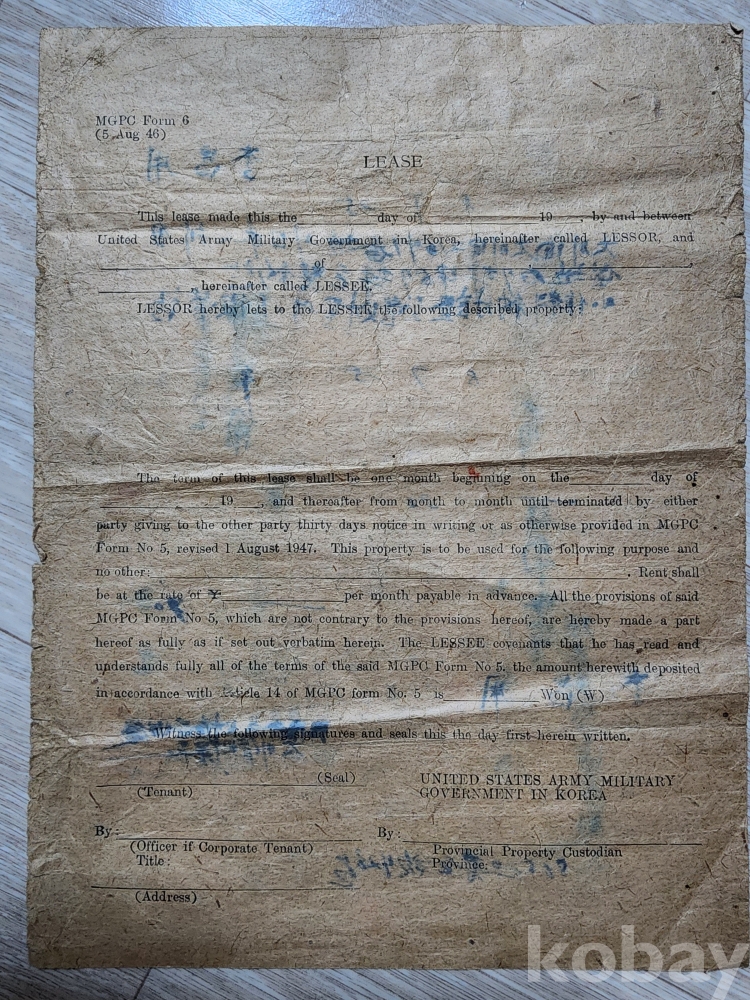 MGPC Form 6
(5 Aug 46)
LEASE
This lease made this the ________ day of ________ 19__, by and between
United States Army Military Government in Korea, hereinafter called LESSOR, and
________ of ________,
________, hereinafter called LESSEE.
LESSOR hereby lets to the LESSEE the following described property:
The term of this lease shall be one month beginning on the ________ day of
________ 19__, and thereafter from month to month until terminated by either
party giving to the other party thirty days notice in writing or as otherwise provided in MGPC
Form No 5, revised 1 August 1947. This property is to be used for the following purpose and
no other: ________. Rent shall
be at the rate of ¥________ per month payable in advance. All the provisions of said
MGPC Form No 5, which are not contrary to the provisions hereof, are hereby made a part
hereof as fully as if set out verbatim herein. The LESSEE covenants that he has read and
understands fully all of the terms of the said MGPC Form No 5. the amount herewith deposited
in accordance with Article 14 of MGPC form No. 5 is ________ Won (W)
Witness the following signatures and seals this the day first herein written.
________ (Seal) UNITED STATES ARMY MILITARY
(Tenant) GOVERNMENT IN KOREA
By: ________ By: ________
(Officer if Corporate Tenant) Provincial Property Custodian
Title: Province:
(Address)
kobay